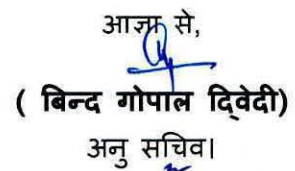 आज्ञा से,
( बिन्द गोपाल दि्वेदी)
अनु सचिव।